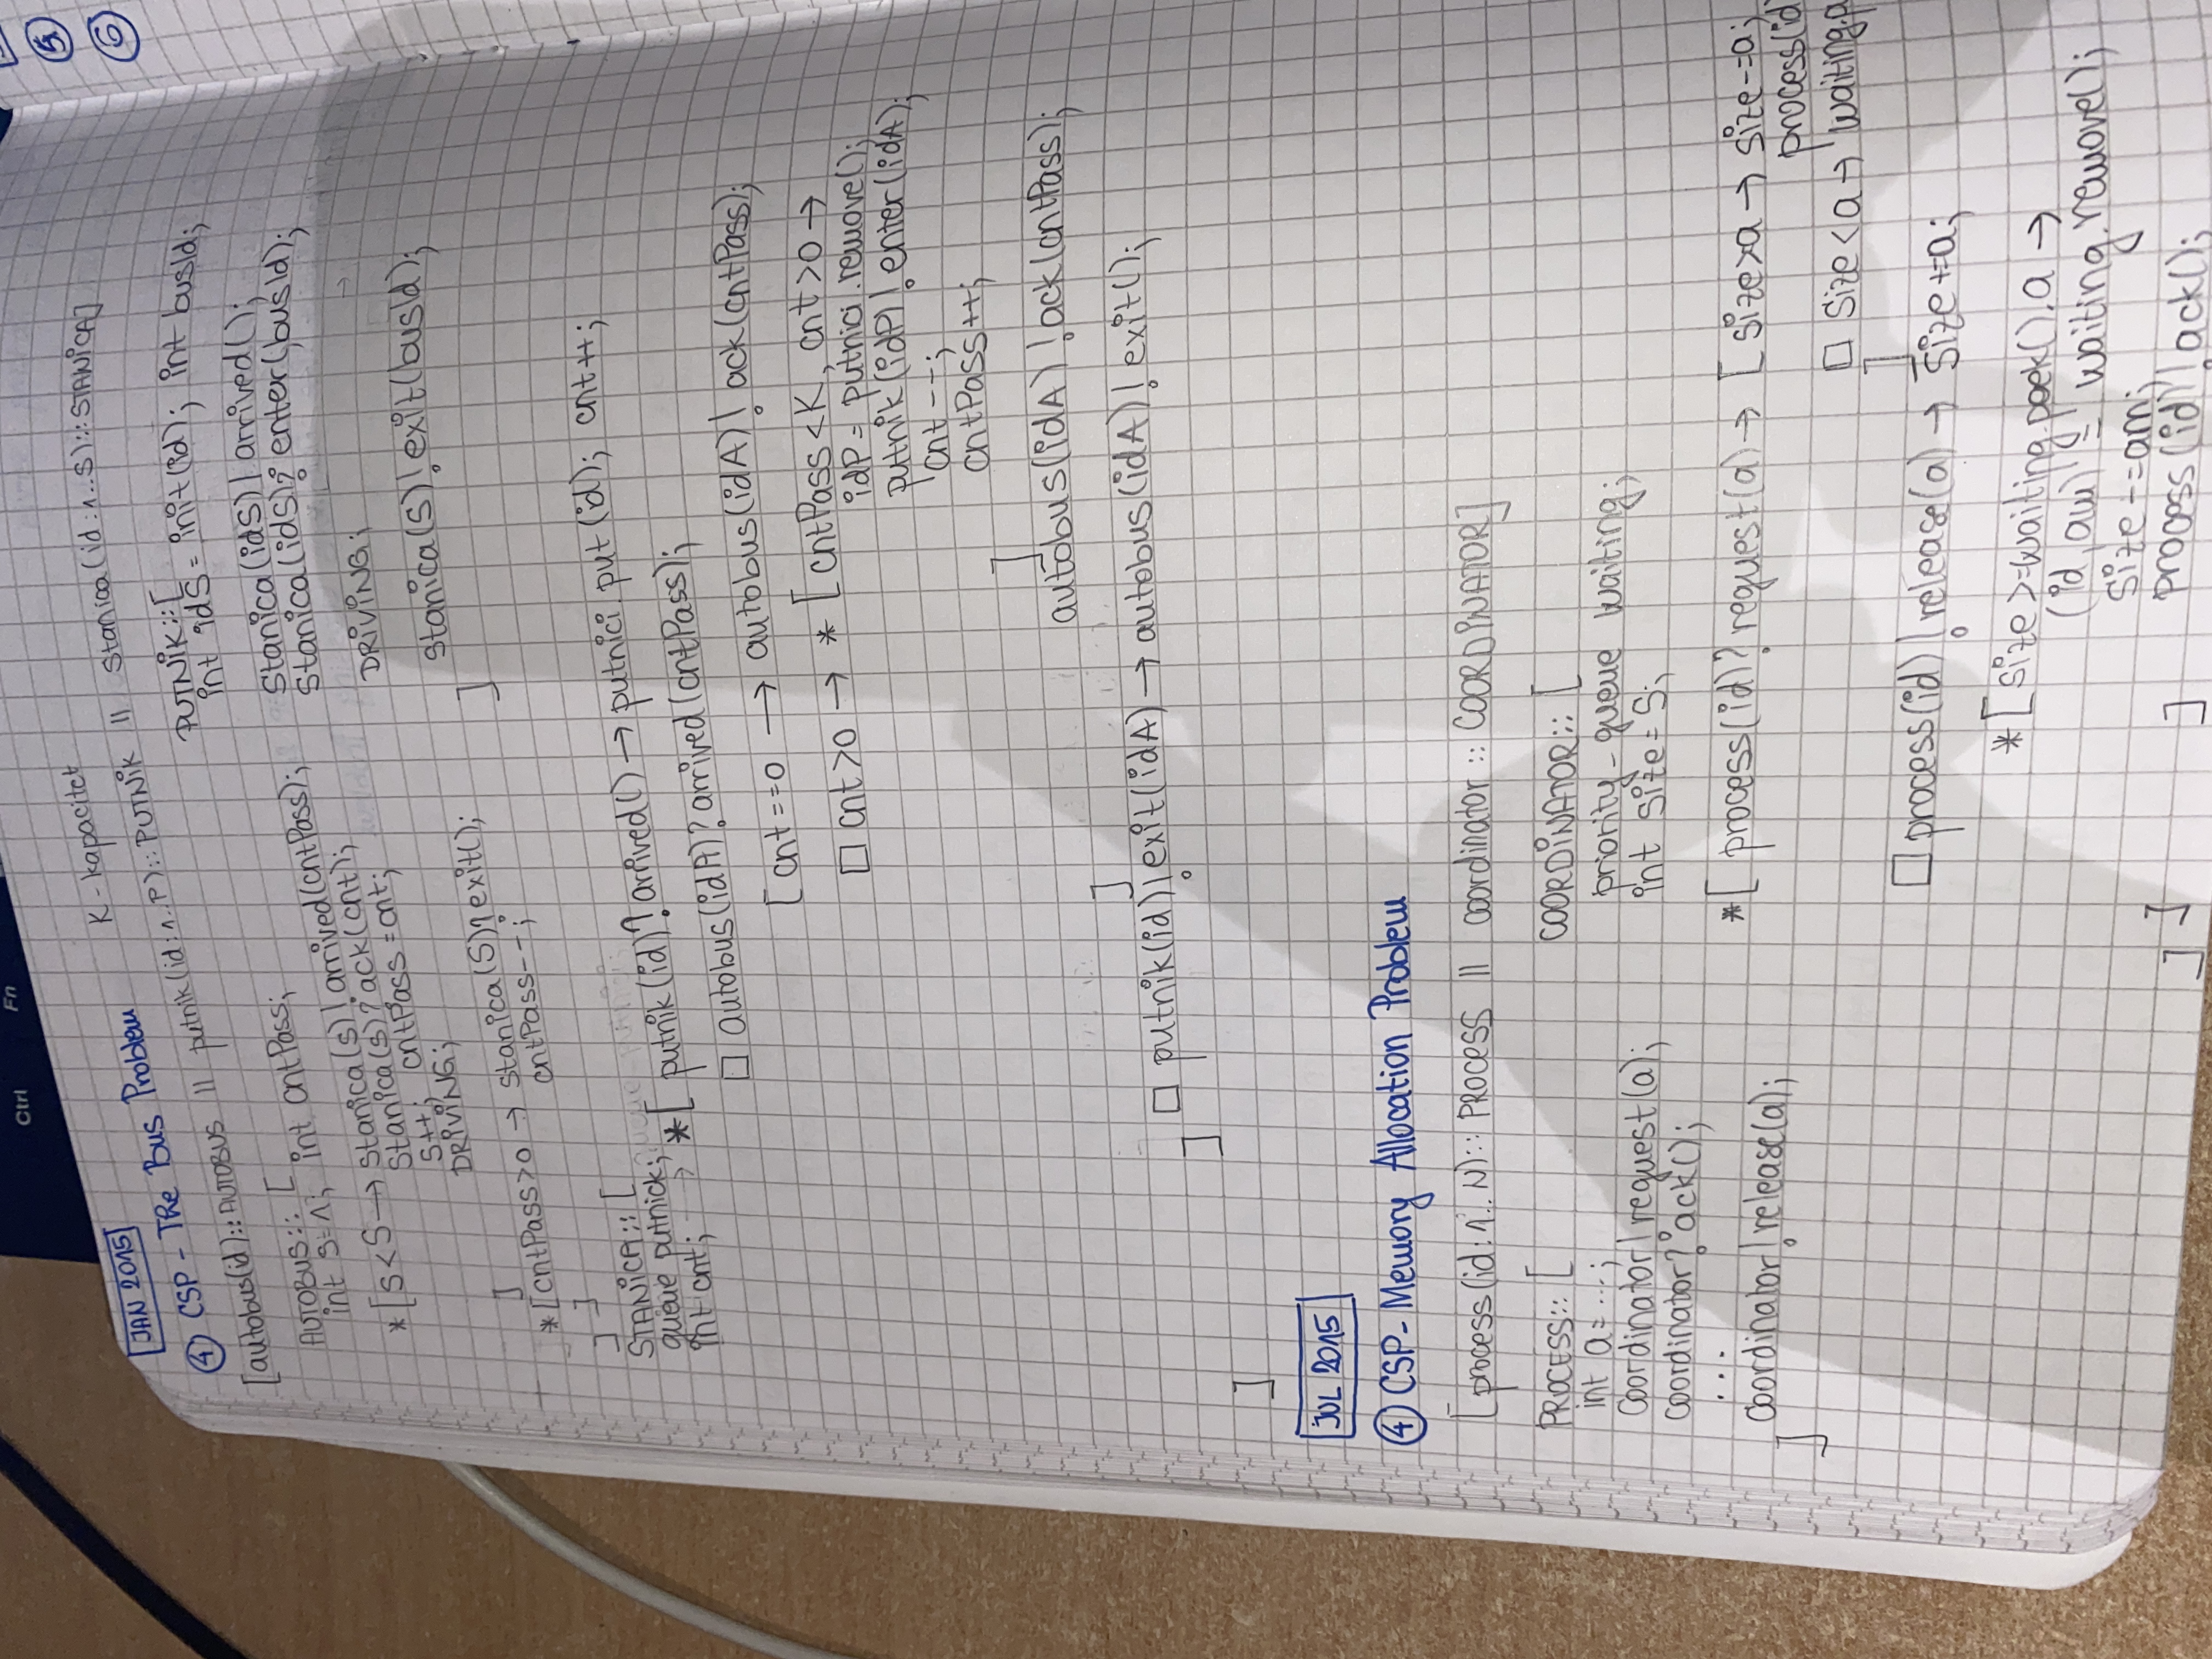 Ctrl
Fn
JAN 2015
④ CSP - The Bus Problem
K - kapacitet
[autobus(id)::AUTOBUS || putnik(id:1..P)::PUTNIK || Stanica(id:1..S)::STANICA]
AUTOBUS:: [
int s=1; int cntPass;
*[s<S → stanica(s)!arrived(cntPass);
stanica(s)?ack(cnt);
s++; cntPass=cnt;
DRIVING;
]
*[cntPass>0 → stanica(S)?exit();
cntPass--;
]
]
PUTNIK::[
int idS = init(id); int busId;
Stanica(idS)!arrived();
Stanica(idS)?enter(busId);
DRIVING;
stanica(S)!exit(busId);
]
STANICA:: [
queue putnick;
int cnt; → *[ putnik(id)?arrived() → putnici.put(id); cnt++;
□ autobus(idA)?arrived(cntPass);
[cnt==0 → autobus(idA)!ack(cntPass);
□ cnt>0 → *[cntPass<K, cnt>0 →
idP = putnici.remove();
putnik(idP)!enter(idA);
cnt--;
cntPass++;
]
autobus(idA)!ack(cntPass);
]
□ putnik(id)!exit(idA) → autobus(idA)!exit();
]
]
JUL 2015
④ CSP- Memory Allocation Problem
[process(id:1..N)::PROCESS || coordinator::COORDINATOR]
PROCESS:: [
int a=...;
Coordinator!request(a);
coordinator?ack();
...
coordinator!release(a);
]
COORDINATOR:: [
priority_queue waiting;
int size=S;
*[ process(id)?request(a) → [size>a → size-=a;
process(id
□ size<a → waiting.p
]
□ process(id)!release(a) → size+=a;
*[size>=waiting.peek().a →
(id,am) = waiting.remove();
size-=am;
process(id)!ack();
]
]
]
⑤
⑥